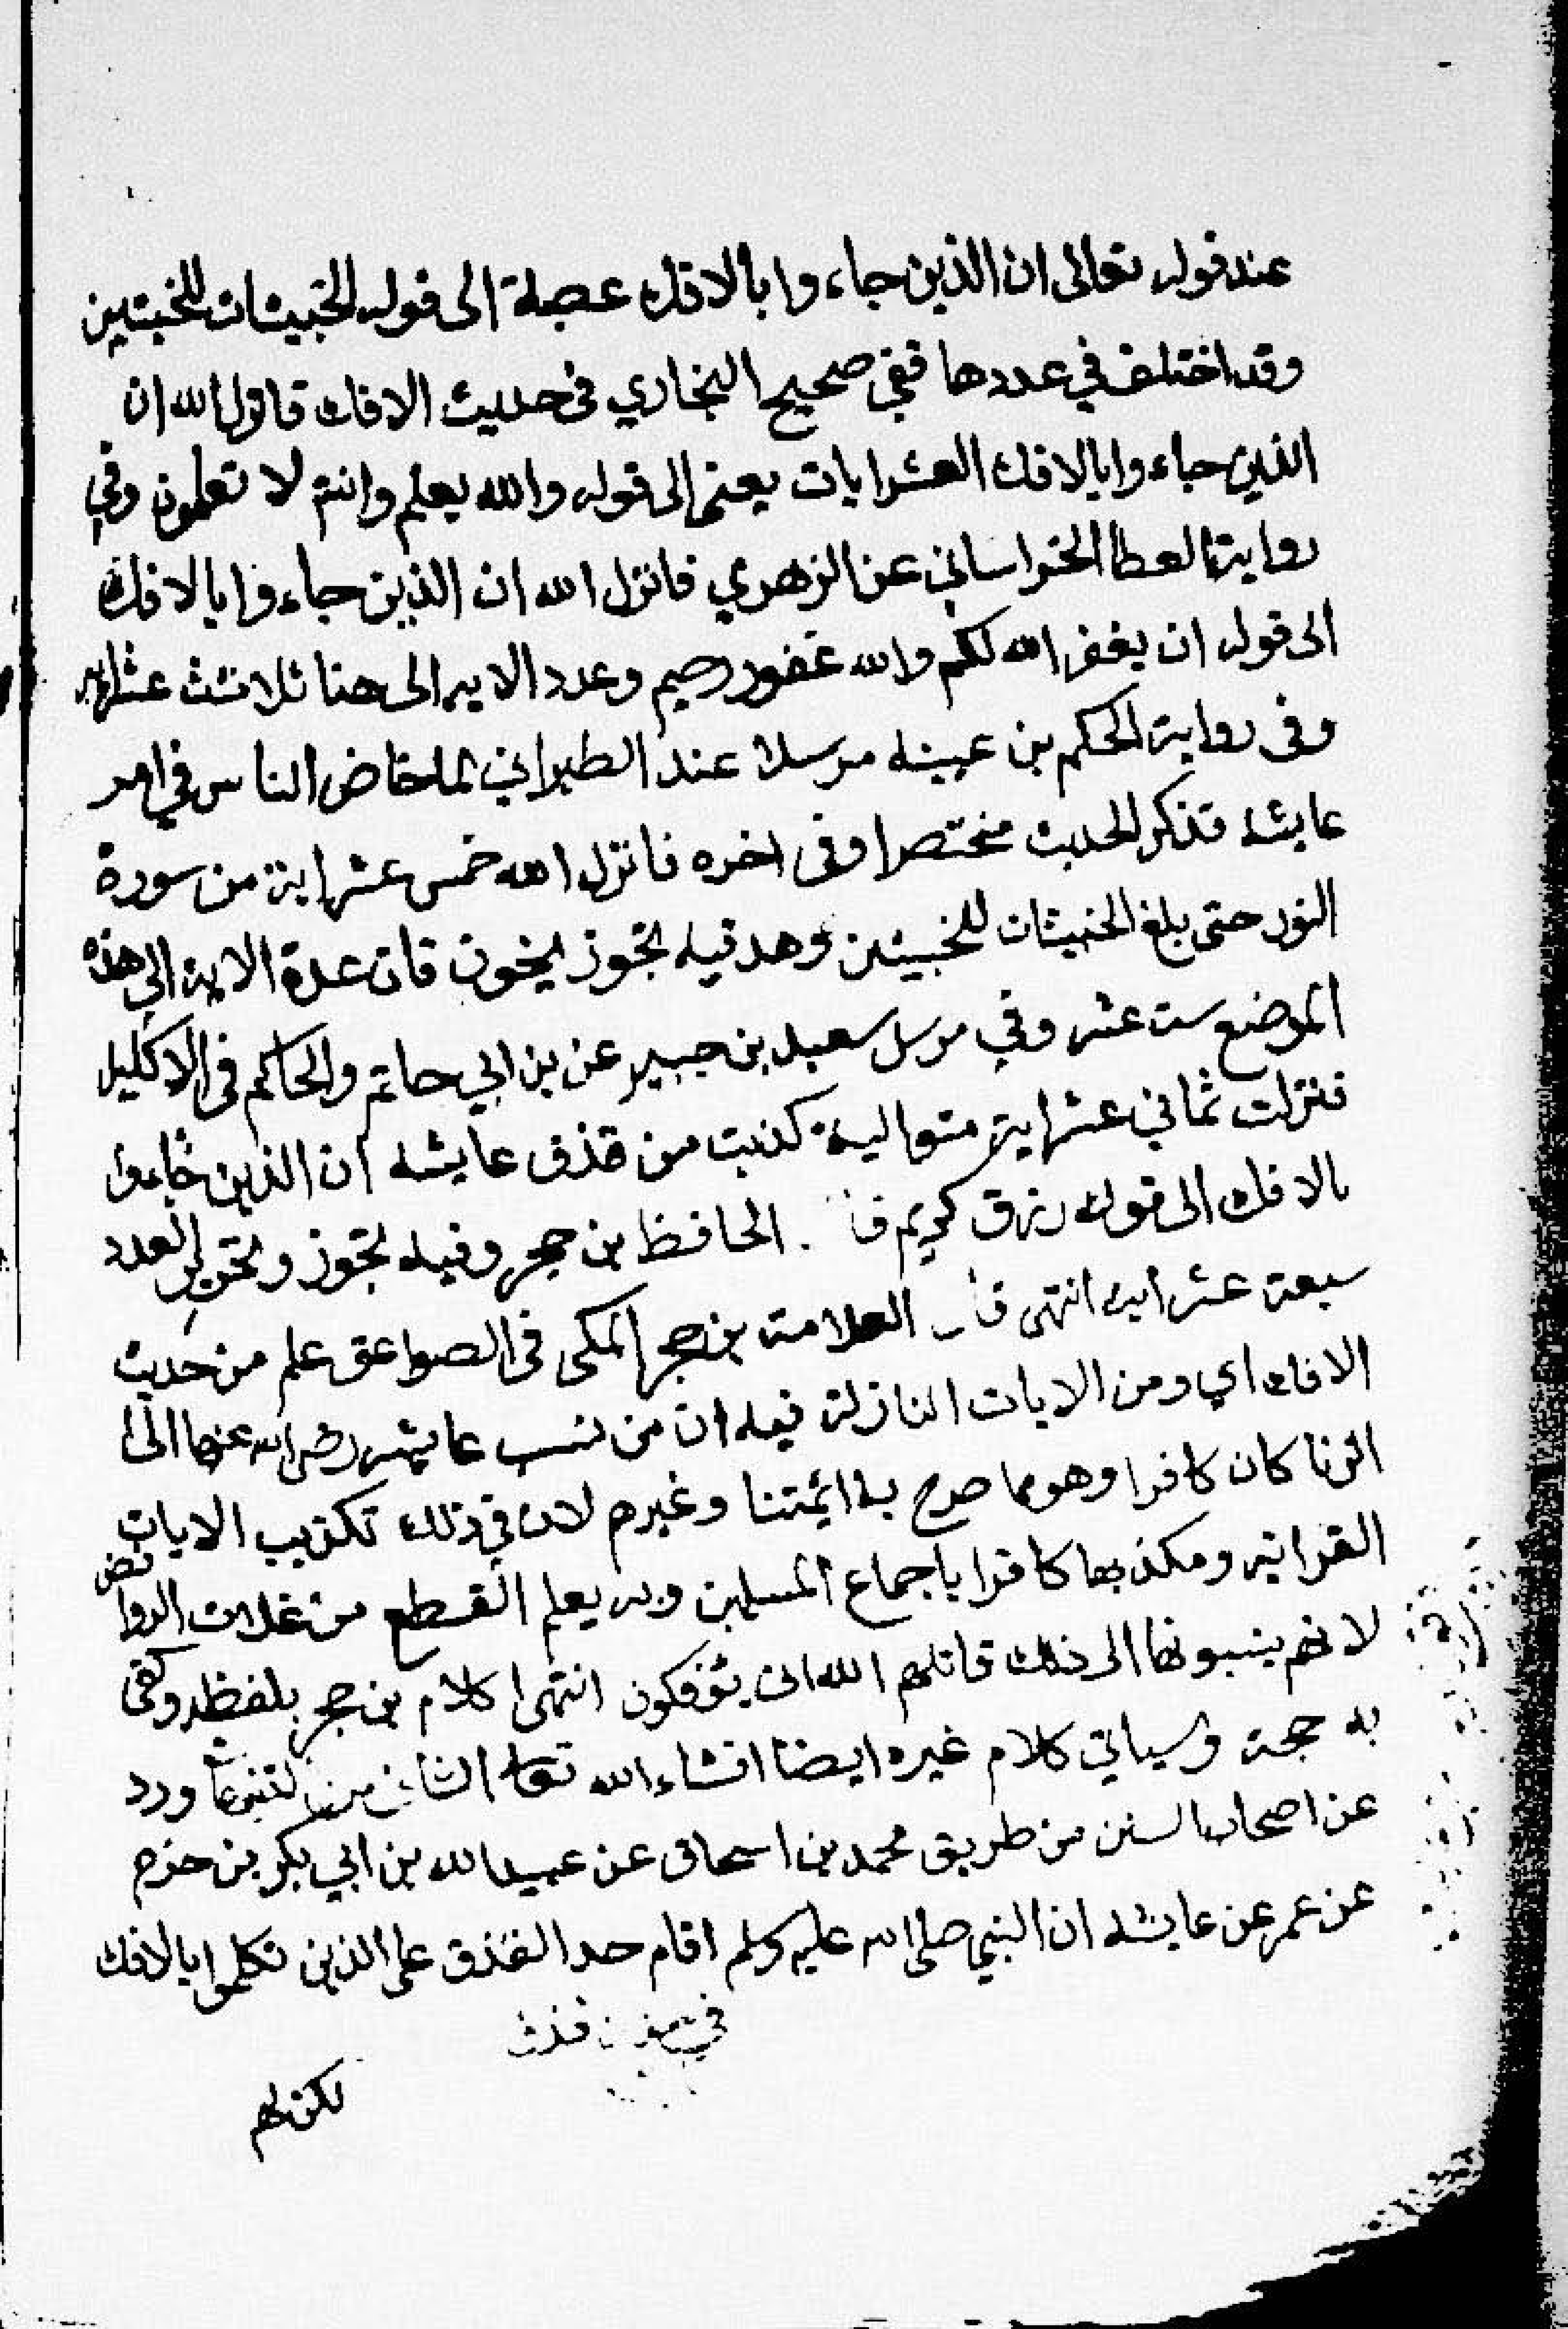 عند قوله تعالى ان الذين جاءوا بالافك عصبة الى قوله الخبيثات للخبيثين
وقد اختلف في عددها ففي صحيح البخاري في حديث الافك فانزل الله ان
الذين جاءوا بالافك العشر ايات يعني الى قوله والله يعلم وانتم لا تعلمون وفي
رواية لعطا الخراساني عن الزهري فانزل الله ان الذين جاءوا بالافك
الى قوله ان يغفر الله لكم والله غفور رحيم وعدد الايه الى هنا ثلاثت عشر ايه
وفى رواية الحكم بن عيينه مرسلا عند الطبراني لما خاض الناس في امر
عايشه فذكر الحديث مختصرا وفى اخره فانزل الله خمس عشر اية من سورة
النور حتى بلغ الخبيثات للخبيثين وهد فيه تجوز فان عدة الاية الى هذه
الموضع ست عشر وفي مرسل سعيد بن جبير عن بن ابي حاتم والحاكم فى الاكليل
فنزلت ثماني عشر اية متوالية كذبت من قذف عايشه ان الذين جاءوا
بالافك الى قوله رزق كريم قال الحافظ بن حجر وفيه تجوز وتحرير العدد
سبعة عشر ايه انتهى قال العلامة بن حجر المكي فى الصواعق علم من حديث
الافك اي ومن الايات النازلة فيه ان من نسب عايشه رضى الله عنها الى
الزنا كان كافرا وهو مما صرح به ايمتنا وغيرهم لان في ذلك تكذيب الايات
القرانيه ومكذبها كافرا باجماع المسلمين وبه يعلم القطع من غلات الروافض
لانهم ينسبونها الى ذلك قاتلهم الله انى يؤفكون انتهى كلام بن حجر بلفظه وكفى
به حجة وسياتي كلام غيره ايضا انشاء الله تعالى الثاني من ورد
عن اصحاب السنن من طريق محمد بن اسحاق عن عبيد الله بن ابي بكر بن حزم
عن عمر عن عايشه ان النبي صلى الله عليه وسلم اقام حد القذف على الذين تكلموا بالافك
لكن لهم